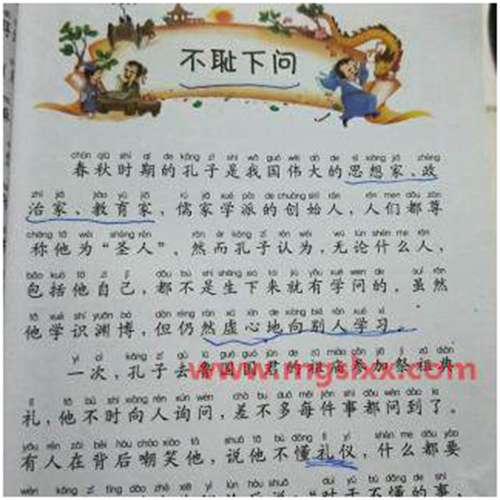 不耻下问
chūn qiū shí qī de kǒng zǐ shì wǒ guó wěi dà de sī xiǎng jiā zhèng
春秋时期的孔子是我国伟大的思想家、政
zhì jiā jiào yù jiā rú jiā xué pài de chuàng shǐ rén rén men dōu zūn
治家、教育家,儒家学派的创始人,人们都尊
chēng tā wéi shèng rén rán ér kǒng zǐ rèn wéi wú lùn shén me rén
称他为“圣人”。然而孔子认为,无论什么人,
bāo kuò tā zì jǐ dōu bú shì shēng xià lái jiù yǒu xué wen de suī rán
包括他自己,都不是生下来就有学问的。虽然
tā xué shí yuān bó dàn réng rán xū xīn de xiàng bié rén xué xí
他学识渊博,但仍然虚心地向别人学习。
yí cì kǒng zǐ qù lǔ guó guó jūn de zǔ miào cān jiā jì zǔ diǎn
一次,孔子去鲁国国君的祖庙参加祭祖典
lǐ tā bù shí xiàng rén xún wèn chà bu duō měi jiàn shì dōu wèn dào le
礼,他不时向人询问,差不多每件事都问到了。
yǒu rén zài bèi hòu cháo xiào tā shuō tā bù dǒng lǐ yí shén me dōu yào
有人在背后嘲笑他,说他不懂礼仪,什么都要
www.mgslxx.com